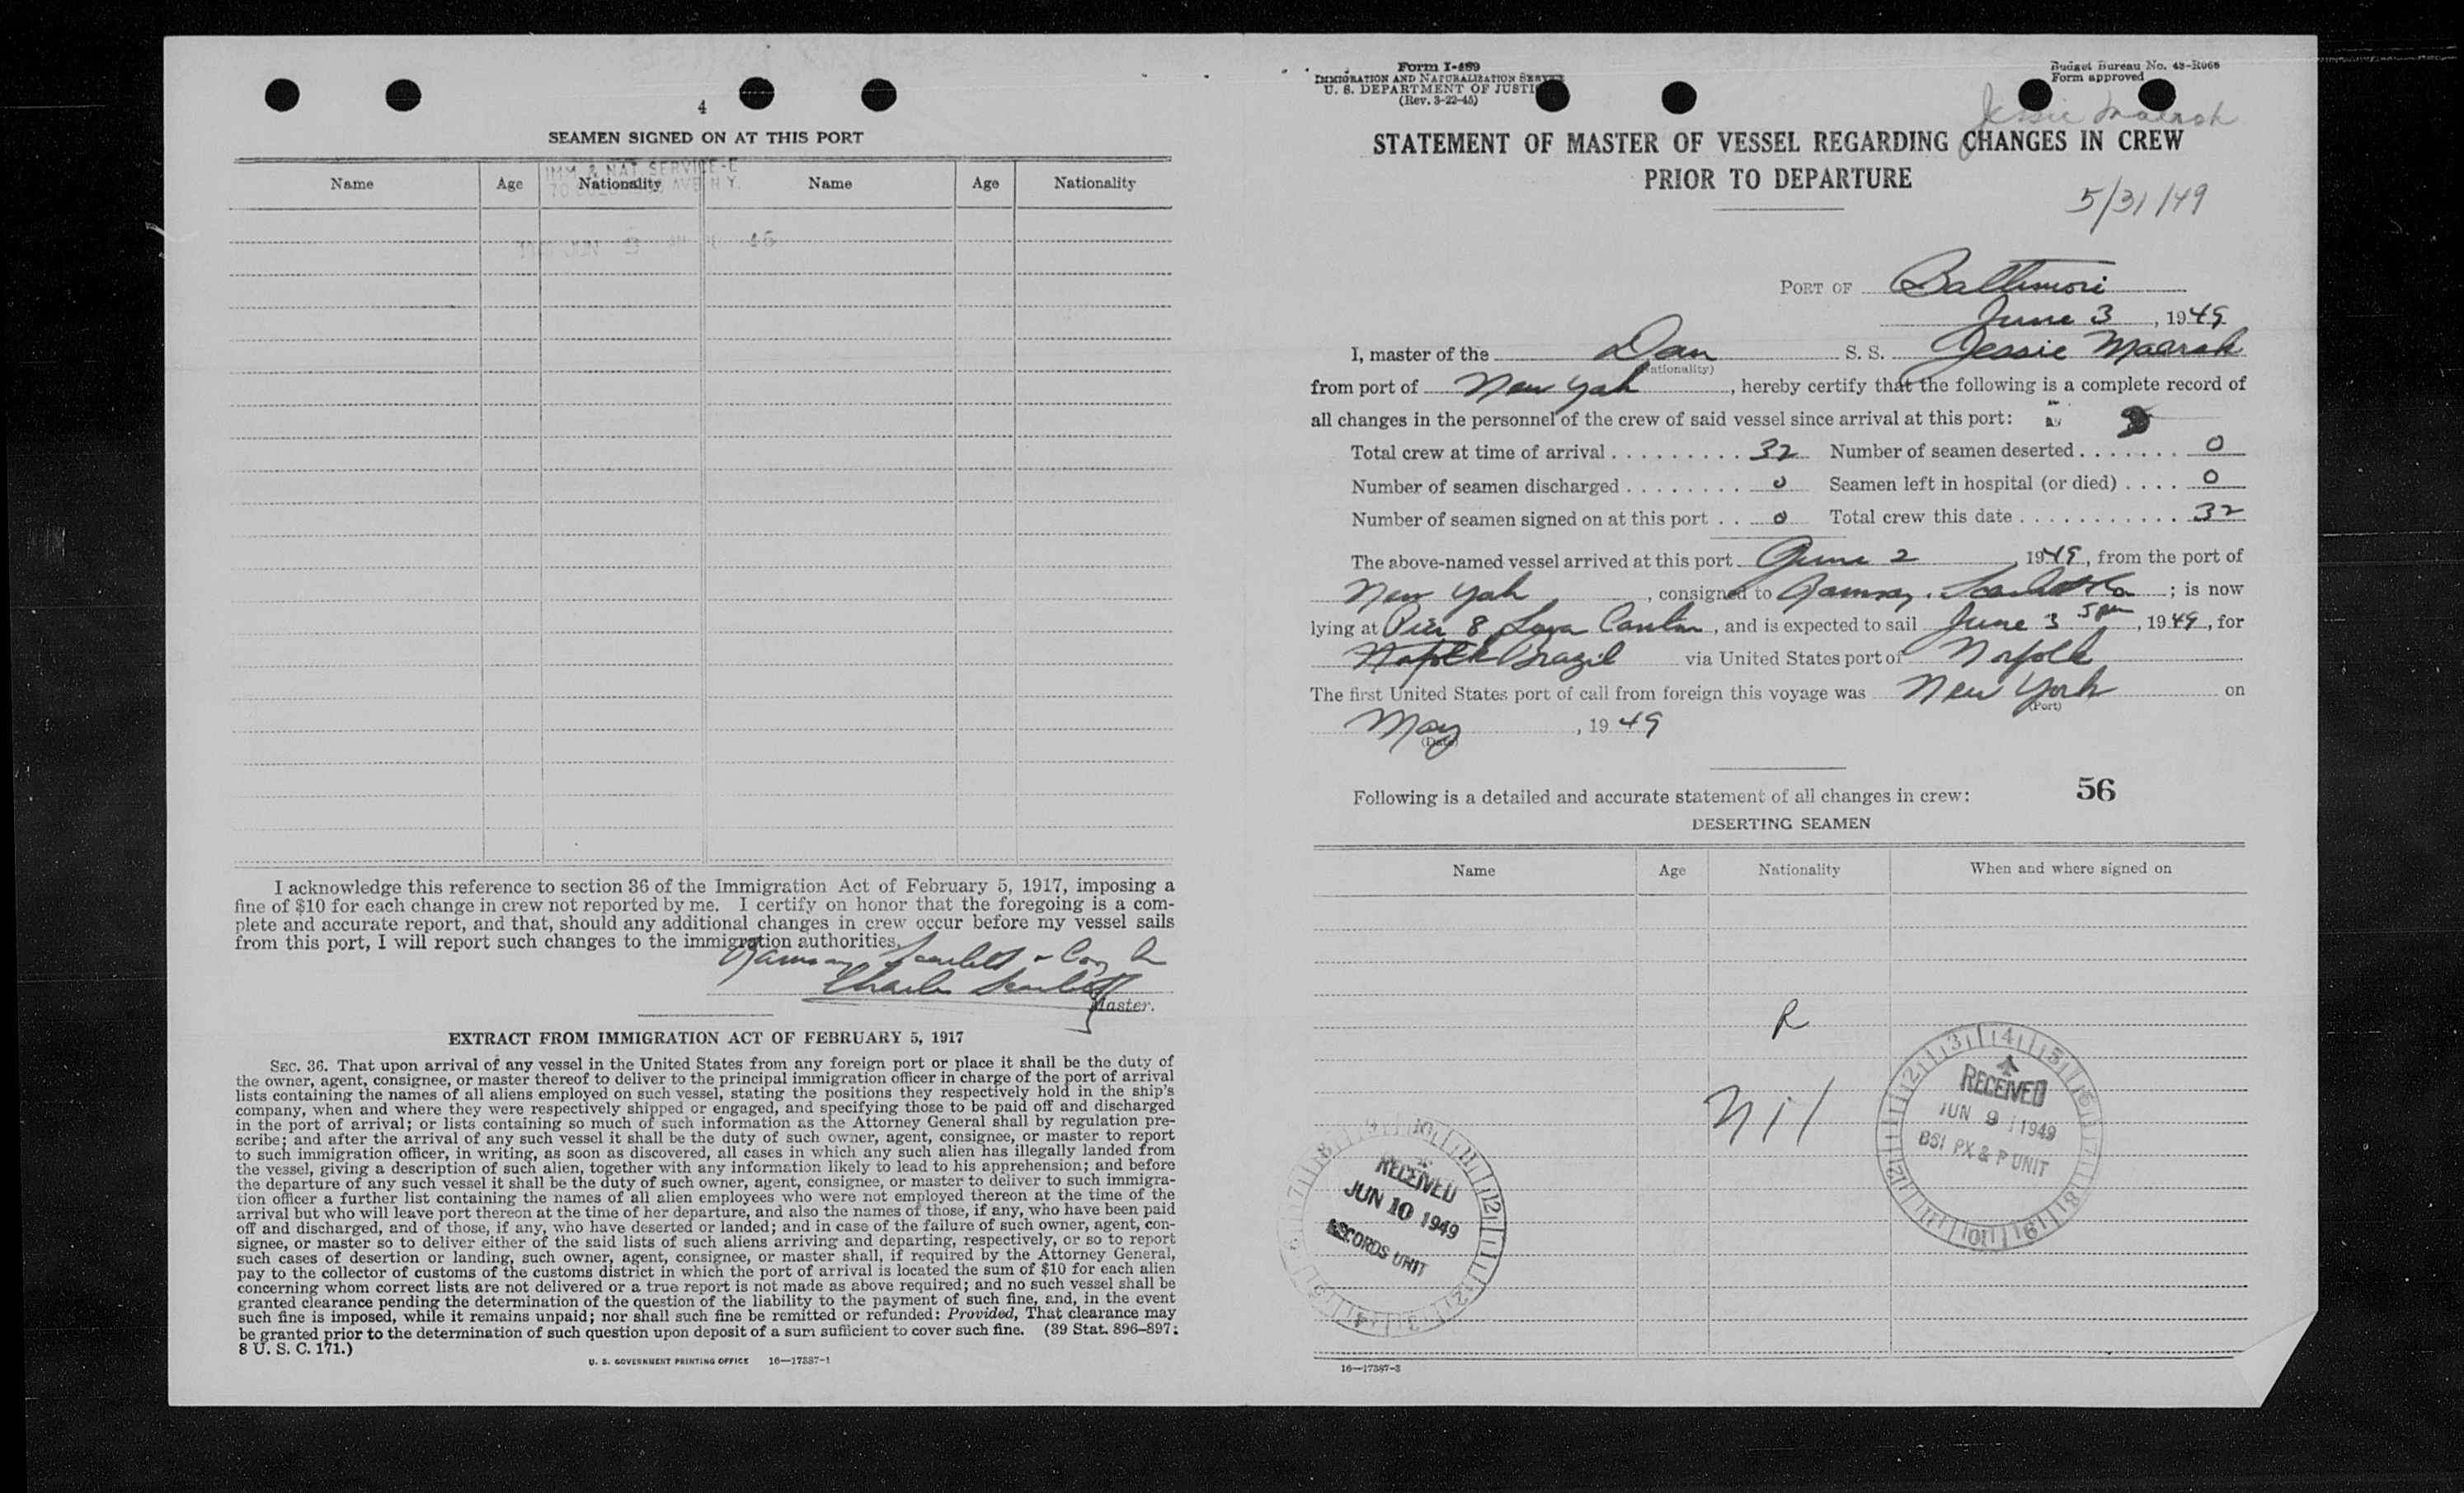 4
SEAMEN SIGNED ON AT THIS PORT
IMM & NAT SERVICE-E
70 AVE N.Y.
Name Age Nationality Name Age Nationality
JUN
I acknowledge this reference to section 36 of the Immigration Act of February 5, 1917, imposing a
fine of $10 for each change in crew not reported by me. I certify on honor that the foregoing is a com-
plete and accurate report, and that, should any additional changes in crew occur before my vessel sails
from this port, I will report such changes to the immigration authorities.
Ramsay Scarlett & Co
Charles Scarlett
Master.
EXTRACT FROM IMMIGRATION ACT OF FEBRUARY 5, 1917
SEC. 36. That upon arrival of any vessel in the United States from any foreign port or place it shall be the duty of
the owner, agent, consignee, or master thereof to deliver to the principal immigration officer in charge of the port of arrival
lists containing the names of all aliens employed on such vessel, stating the positions they respectively hold in the ship's
company, when and where they were respectively shipped or engaged, and specifying those to be paid off and discharged
in the port of arrival; or lists containing so much of such information as the Attorney General shall by regulation pre-
scribe; and after the arrival of any such vessel it shall be the duty of such owner, agent, consignee, or master to report
to such immigration officer, in writing, as soon as discovered, all cases in which any such alien has illegally landed from
the vessel, giving a description of such alien, together with any information likely to lead to his apprehension; and before
the departure of any such vessel it shall be the duty of such owner, agent, consignee, or master to deliver to such immigra-
tion officer a further list containing the names of all alien employees who were not employed thereon at the time of the
arrival but who will leave port thereon at the time of her departure, and also the names of those, if any, who have been paid
off and discharged, and of those, if any, who have deserted or landed; and in case of the failure of such owner, agent, con-
signee, or master so to deliver either of the said lists of such aliens arriving and departing, respectively, or so to report
such cases of desertion or landing, such owner, agent, consignee, or master shall, if required by the Attorney General,
pay to the collector of customs of the customs district in which the port of arrival is located the sum of $10 for each alien
concerning whom correct lists are not delivered or a true report is not made as above required; and no such vessel shall be
granted clearance pending the determination of the question of the liability to the payment of such fine, and, in the event
such fine is imposed, while it remains unpaid; nor shall such fine be remitted or refunded: Provided, That clearance may
be granted prior to the determination of such question upon deposit of a sum sufficient to cover such fine. (39 Stat. 896–897;
8 U. S. C. 171.)
U. S. GOVERNMENT PRINTING OFFICE 16—17387-1
Form I-489
IMMIGRATION AND NATURALIZATION SERVICE
U. S. DEPARTMENT OF JUSTI
(Rev. 3-22-45)
Budget Bureau No. 43-R066
Form approved
Jessie Maersk
STATEMENT OF MASTER OF VESSEL REGARDING CHANGES IN CREW
PRIOR TO DEPARTURE
5/31/49
PORT OF Baltimore
June 3, 1949
I, master of the Dan S. S. Jessie Maersk
(Nationality)
from port of New York, hereby certify that the following is a complete record of
all changes in the personnel of the crew of said vessel since arrival at this port:
Total crew at time of arrival . . . . . . . . . 32 Number of seamen deserted . . . . . . . 0
Number of seamen discharged . . . . . . . . 0 Seamen left in hospital (or died) . . . . 0
Number of seamen signed on at this port . . 0 Total crew this date . . . . . . . . . . . . 32
The above-named vessel arrived at this port June 2 1949, from the port of
New York, consigned to Ramsay, Scarlett & Co; is now
lying at Pier 8 Canton, and is expected to sail June 3 5pm, 1949, for
Norfolk Brazil via United States port of Norfolk
The first United States port of call from foreign this voyage was New York on
(Port)
May, 1949
(Date)
Following is a detailed and accurate statement of all changes in crew: 56
DESERTING SEAMEN
Name Age Nationality When and where signed on
R
Nil
RECEIVED
JUN 9 1949
BSI PX & P UNIT
RECEIVED
JUN 10 1949
RECORDS UNIT
16—17387-3